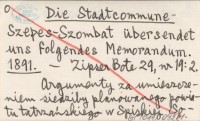 Die Stadtcommune
Szepes-Szombat übersendet
uns folgendes Memorandum.
1891. - Zipser Bote 29, nr 19: 2.
Argumenty za umieszcze-
niem siedziby planowanego powia-
tu tatrzańskiego w Spiskiej